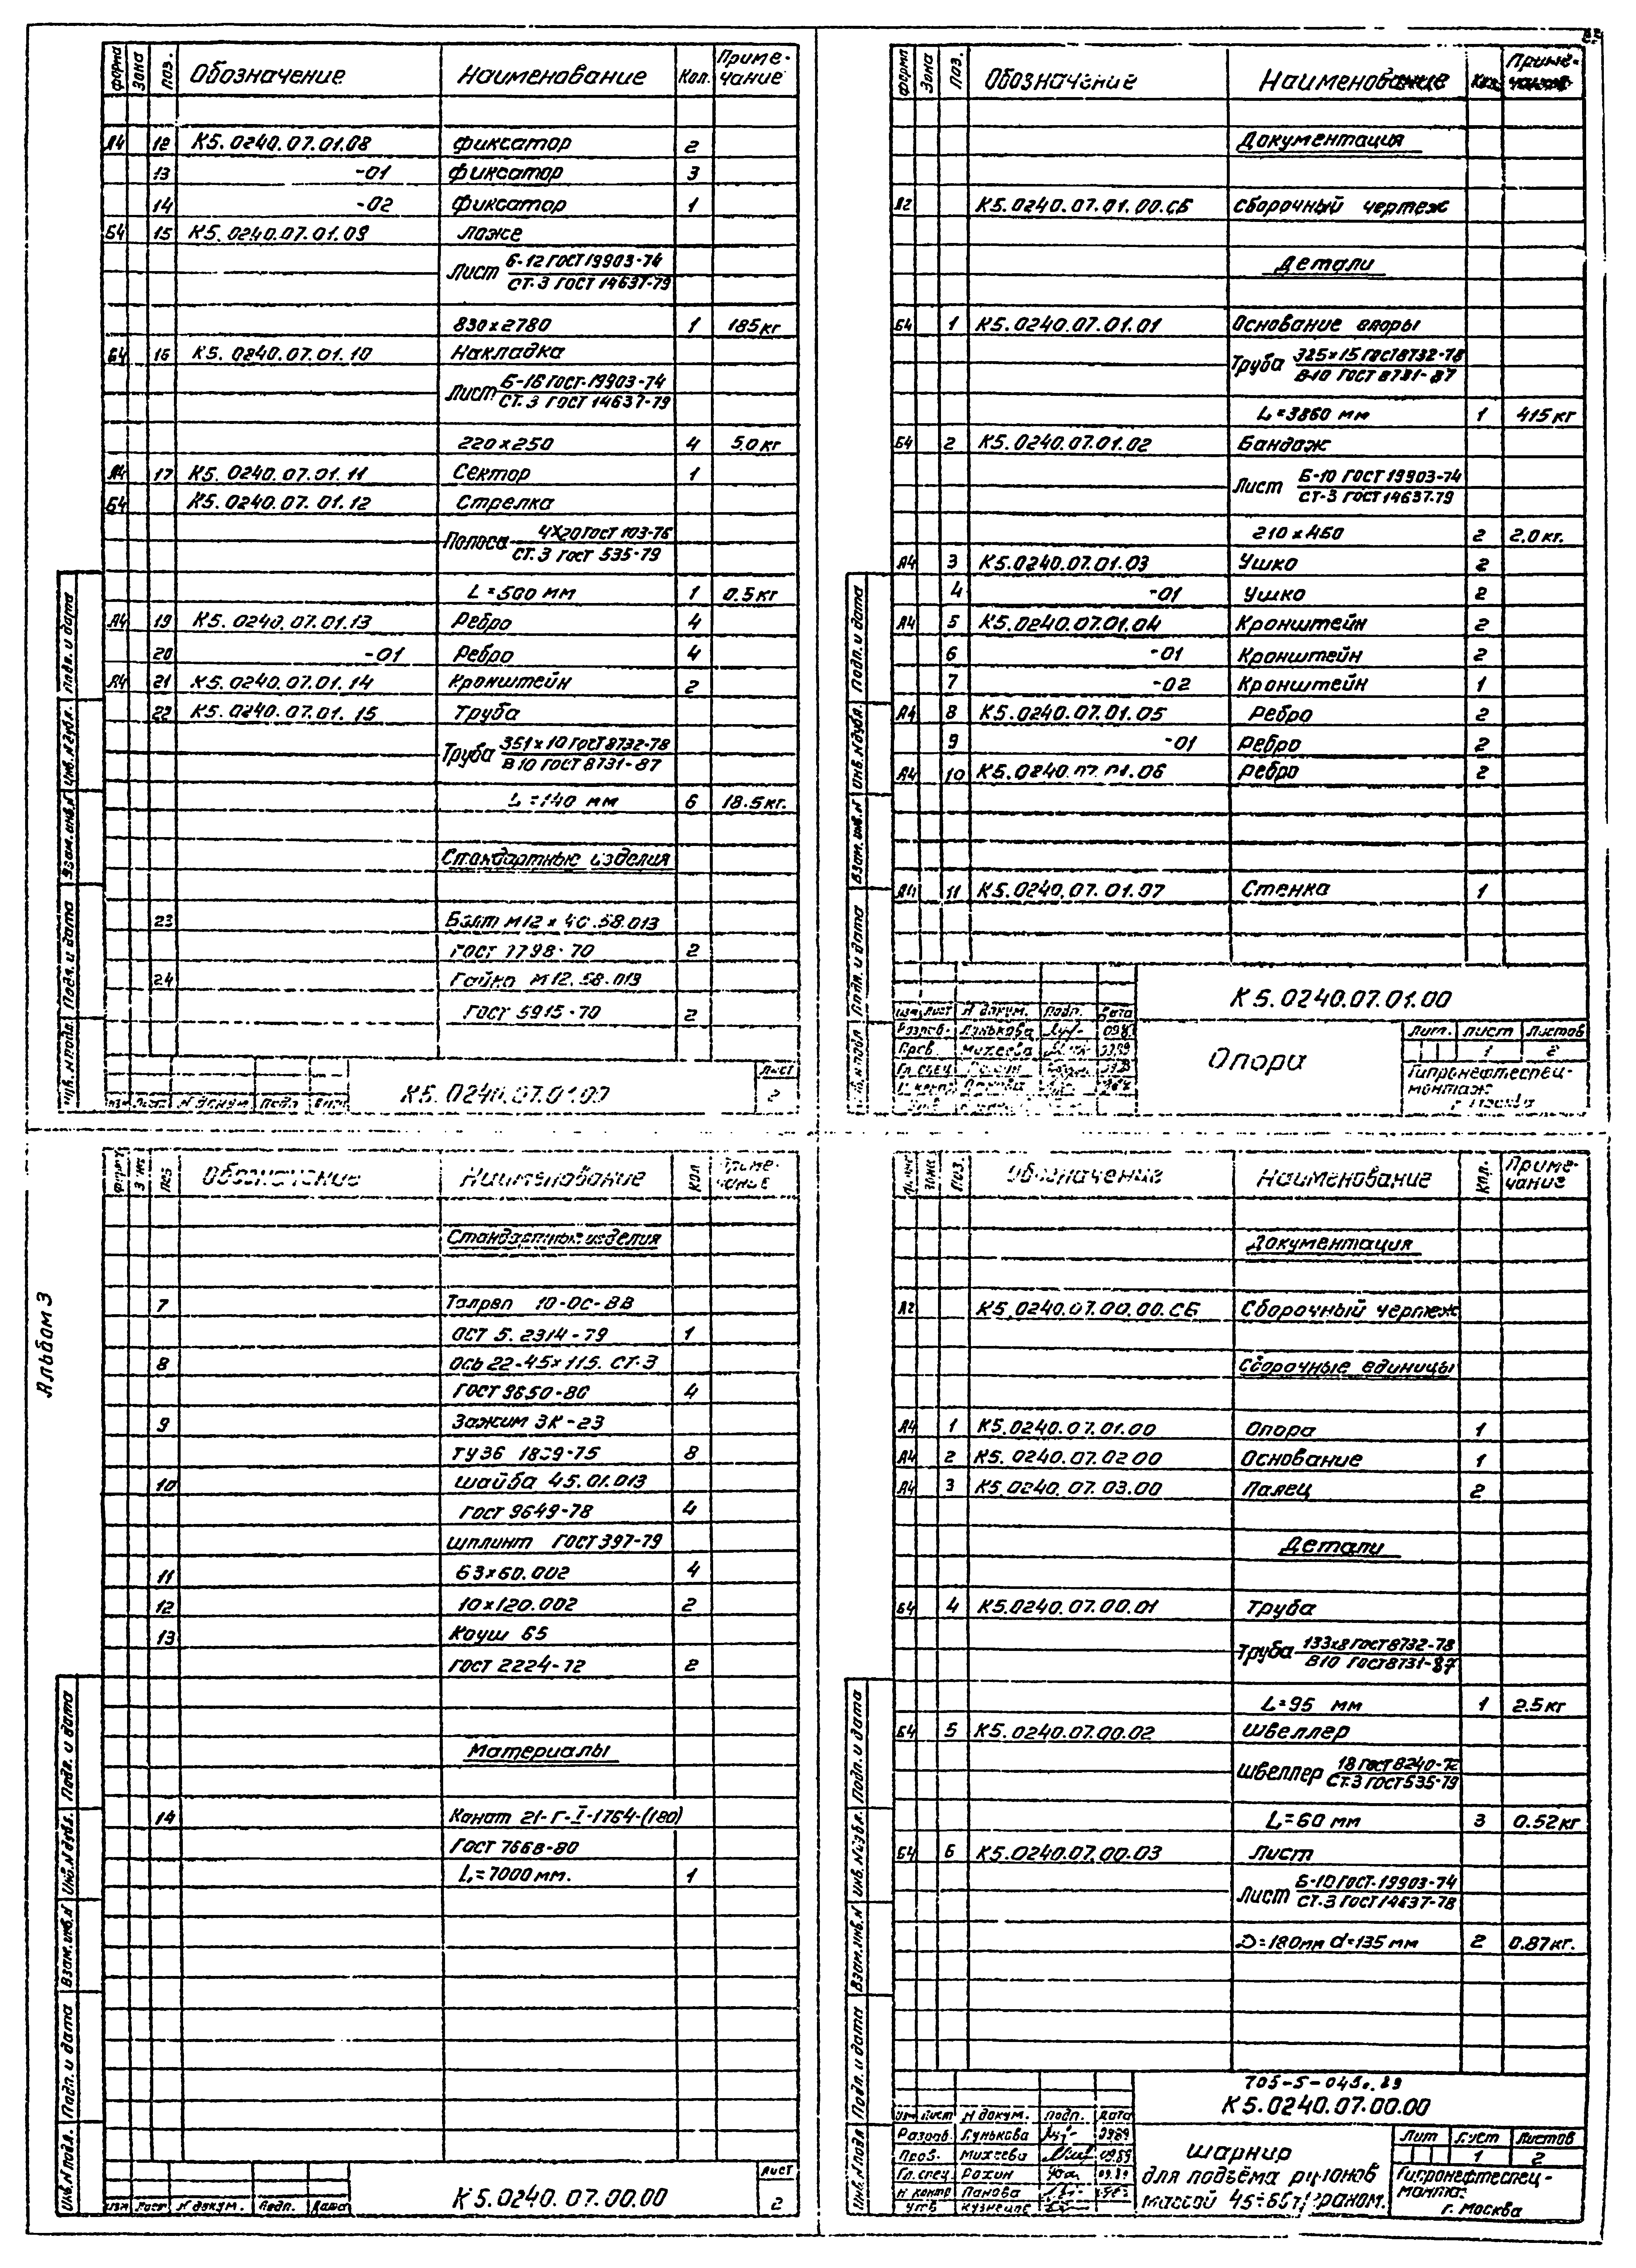 Форма Зона Поз. Обозначение Наименование Кол. Приме-
чание
А4 12 К5.0240.07.01.08 Фиксатор 2
13 -01 Фиксатор 3
14 -02 Фиксатор 1
Б4 15 К5.0240.07.01.09 Ложе
Лист Б-12 ГОСТ 19903-74
СТ.3 ГОСТ 14637-79
830х2780 1 185кг
Б4 16 К5.0240.07.01.10 Накладка
Лист Б-16 ГОСТ-19903-74
СТ.3 ГОСТ 14637-79
220х250 4 5.0кг
А4 17 К5.0240.07.01.11 Сектор 1
Б4 К5.0240.07.01.12 Стрелка
Полоса 4х20 ГОСТ 103-76
СТ.3 ГОСТ 535-79
L=500 мм 1 0.5кг
А4 19 К5.0240.07.01.13 Ребро 4
20 -01 Ребро 4
А4 21 К5.0240.07.01.14 Кронштейн 2
22 К5.0240.07.01.15 Труба
Труба 351х10 ГОСТ 8732-78
В10 ГОСТ 8731-87
L=140 мм 6 18.5кг.
Стандартные изделия
23 Болт М12х40.58.013
ГОСТ 7798-70 2
24 Гайка М12.58.013
ГОСТ 5915-70 2
Инв.№подл. Подп. и дата Взам.инв.№ Инв.№дубл. Подп. и дата
Изм Лист № докум Подп
К5.0240.07.01.00
Лист
2
Форма Зона Поз. Обозначение Наименование Кол. Приме-
чание
Документация
А2 К5.0240.07.01.00.СБ Сборочный чертеж
Детали
Б4 1 К5.0240.07.01.01 Основание опоры
Труба 325х15 ГОСТ 8732-78
В-10 ГОСТ 8731-87
L=3860 мм 1 415кг
Б4 2 К5.0240.07.01.02 Бандаж
Лист Б-10 ГОСТ 19903-74
СТ-3 ГОСТ 14637-79
210х460 2 2.0кг.
А4 3 К5.0240.07.01.03 Ушко 2
4 -01 Ушко 2
А4 5 К5.0240.07.01.04 Кронштейн 2
6 -01 Кронштейн 2
7 -02 Кронштейн 1
А4 8 К5.0240.07.01.05 Ребро 2
9 -01 Ребро 2
А4 10 К5.0240.07.01.06 Ребро 2
А4 11 К5.0240.07.01.07 Стенка 1
Инв.№подл Подп. и дата Взам.инв.№ Инв.№дубл. Подп. и дата
Изм Лист № докум. Подп. Дата
Разраб.
Пров. Михеева
К5.0240.07.01.00
Опора
Лит. Лист Листов
1 2
Гипронефтеспец-
монтаж
г. Москва
Альбом 3
Поз Обозначение Наименование Кол Приме-
чание
Стандартные изделия
7 Талреп 10-ОС-ВВ
ОСТ 5.2314-79 1
8 Ось 22-45х115. СТ.3
ГОСТ 9650-80 4
9 Зажим ЗК-23
ТУ36 1839-75 8
10 Шайба 45.01.013
ГОСТ 9649-78 4
Шплинт ГОСТ 397-79
11 63х60.002 4
12 10х120.002 2
13 Коуш 65
ГОСТ 2224-72 2
Материалы
14 Канат 21-Г-I-1764-(180)
ГОСТ 7668-80
L=7000мм. 1
Инв.№подл. Подп. и дата Взам.инв.№ Инв.№дубл. Подп. и дата
Изм Лист № докум. Подп. Дата
К5.0240.07.00.00
Лист
2
Зона Поз. Обозначение Наименование Кол. Приме-
чание
Документация
А2 К5.0240.07.00.00.СБ Сборочный чертеж
Сборочные единицы
А4 1 К5.0240.07.01.00 Опора 1
А4 2 К5.0240.07.02.00 Основание 1
А4 3 К5.0240.07.03.00 Палец 2
Детали
Б4 4 К5.0240.07.00.01 Труба
Труба 133х8 ГОСТ 8732-78
В10 ГОСТ 8731-87
L=95 мм 1 2.5кг
Б4 5 К5.0240.07.00.02 Швеллер
Швеллер 18 ГОСТ 8240-72
СТ.3 ГОСТ 535-79
L=60 мм 3 0.52кг
Б4 6 К5.0240.07.00.03 Лист
Лист Б-10 ГОСТ-19903-74
СТ.3 ГОСТ 14637-78
D=180мм d=135 мм 2 0.87кг.
Инв.№подл Подп. и дата Взам.инв.№ Инв.№дубл. Подп. и дата
705-5-045с.89
К5.0240.07.00.00
Изм Лист № докум. Подп. Дата
Разраб. Гунькова 09.89
Пров. Михеева 09.89
Гл. спец Рохин 09.89
Н контр Панова
Утв
Шарнир
для подъёма рулонов
массой 45÷65т краном.
Лит Лист Листов
1 2
Гипронефтеспец-
монтаж
г. Москва